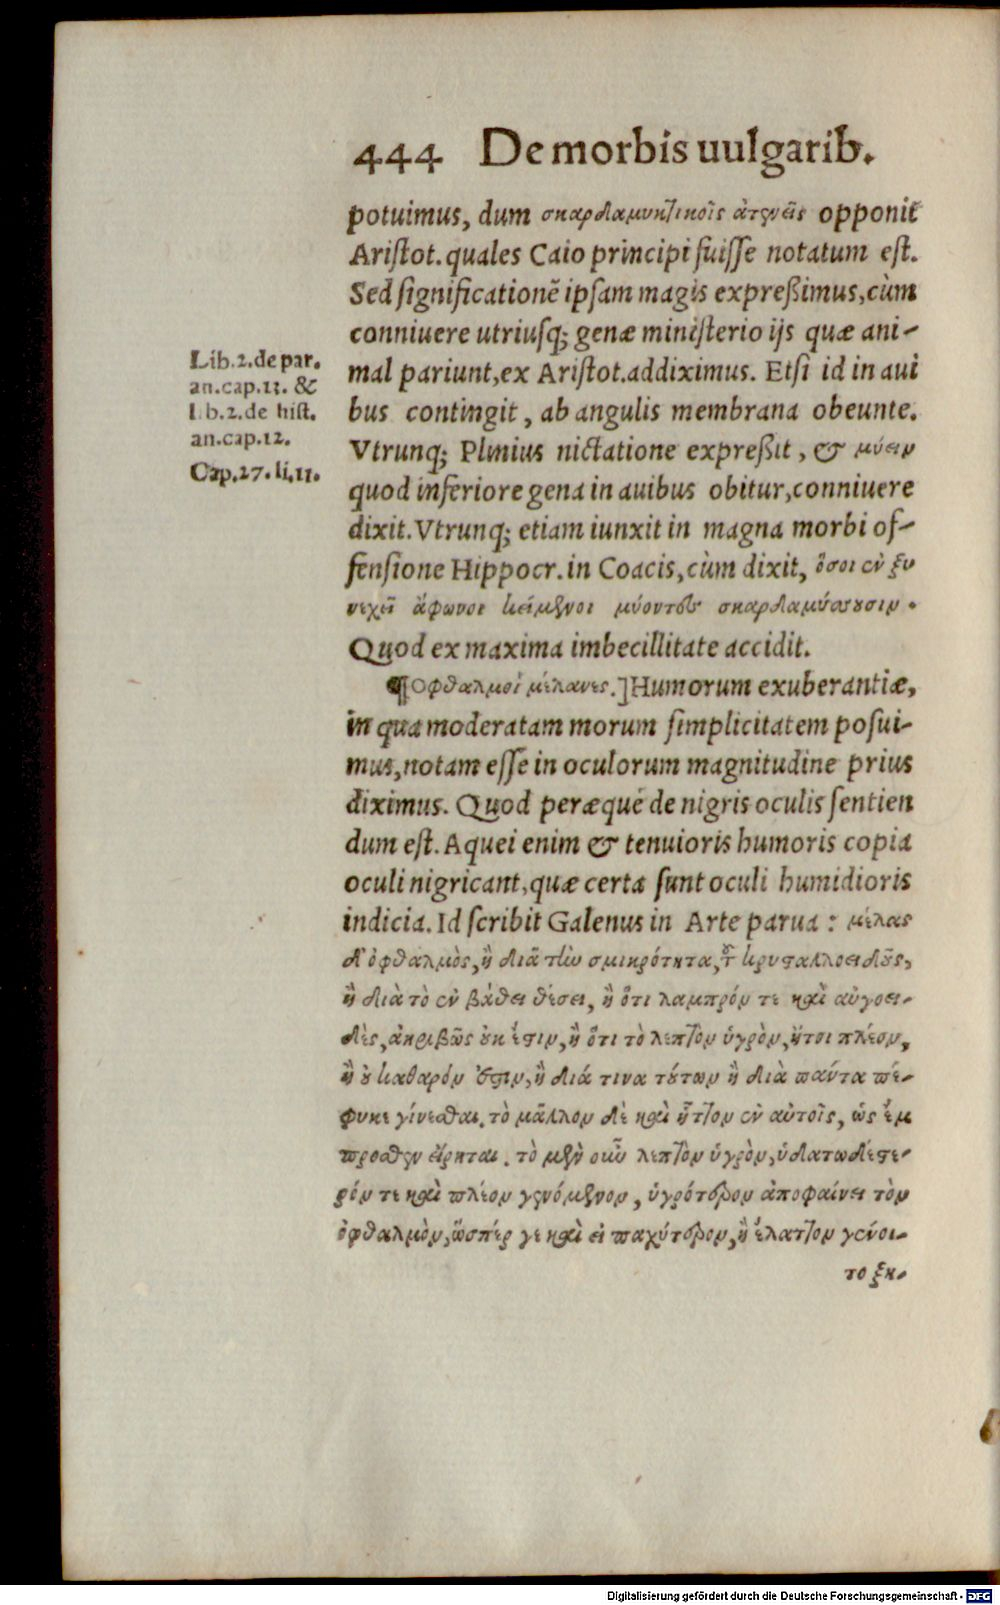 444 De morbis uulgarib.
potuimus, dum σκαρδαμυκτικοῖς ἀτενεῖς opponit
Aristot. quales Caio principi fuisse notatum est.
Sed significationē ipsam magis expreßimus, cùm
conniuere utriusq; genæ ministerio ijs quæ ani-
mal pariunt, ex Aristot. addiximus. Etsi id in aui
bus contingit, ab angulis membrana obeunte.
Vtrunq; Plinius nictatione expreßit, & μύειν
quod inferiore gena in auibus obitur, conniuere
dixit. Vtrunq; etiam iunxit in magna morbi of-
fensione Hippocr. in Coacis, cùm dixit, ὅσοι ἐν ξυ
νεχεῖ ἄφωνοι κείμενοι μύοντες σκαρδαμύσσουσιν.
Quod ex maxima imbecillitate accidit.
¶Οφθαλμοὶ μέλανες.] Humorum exuberantiæ,
in qua moderatam morum simplicitatem posui-
mus, notam esse in oculorum magnitudine prius
diximus. Quod peræquè de nigris oculis sentien
dum est. Aquei enim & tenuioris humoris copia
oculi nigricant, quæ certa sunt oculi humidioris
indicia. Id scribit Galenus in Arte parua: μέλας
δ' ὀφθαλμὸς, ἢ διὰ τὴν σμικρότητα, τοῦ κρυσταλλοειδοῦς,
ἢ διὰ τὸ ἐν βάθει θέσει, ἢ ὅτι λαμπρόν τε καὶ αὐγοει-
δὲς, ἀκριβῶς οὐκ ἔστιν, ἢ ὅτι τὸ λεπτὸν ὑγρὸν, ἤτοι πλέον,
ἢ οὐ καθαρόν ἐστιν, ἢ διά τινα τούτων ἢ διὰ πάντα πέ-
φυκε γίνεσθαι. τὸ μᾶλλον δὲ καὶ ἧττον ἐν αὐτοῖς, ὡς ἔμ
προσθεν εἴρηται. τὸ μὲν οὖν λεπτὸν ὑγρὸν, ὑδατωδέστε-
ρόν τε καὶ πλέον γενόμενον, ὑγρότερον ἀποφαίνει τὸν
ὀφθαλμὸν, ὥσπέρ γε καὶ εἰ παχύτερον, ἢ ἔλαττον γένοι-
το ξη-
Lib.2.de par.
an.cap.13. &
lib.2.de hist.
an.cap.12.
Cap.27.li.11.
Digitalisierung gefördert durch die Deutsche Forschungsgemeinschaft - DFG